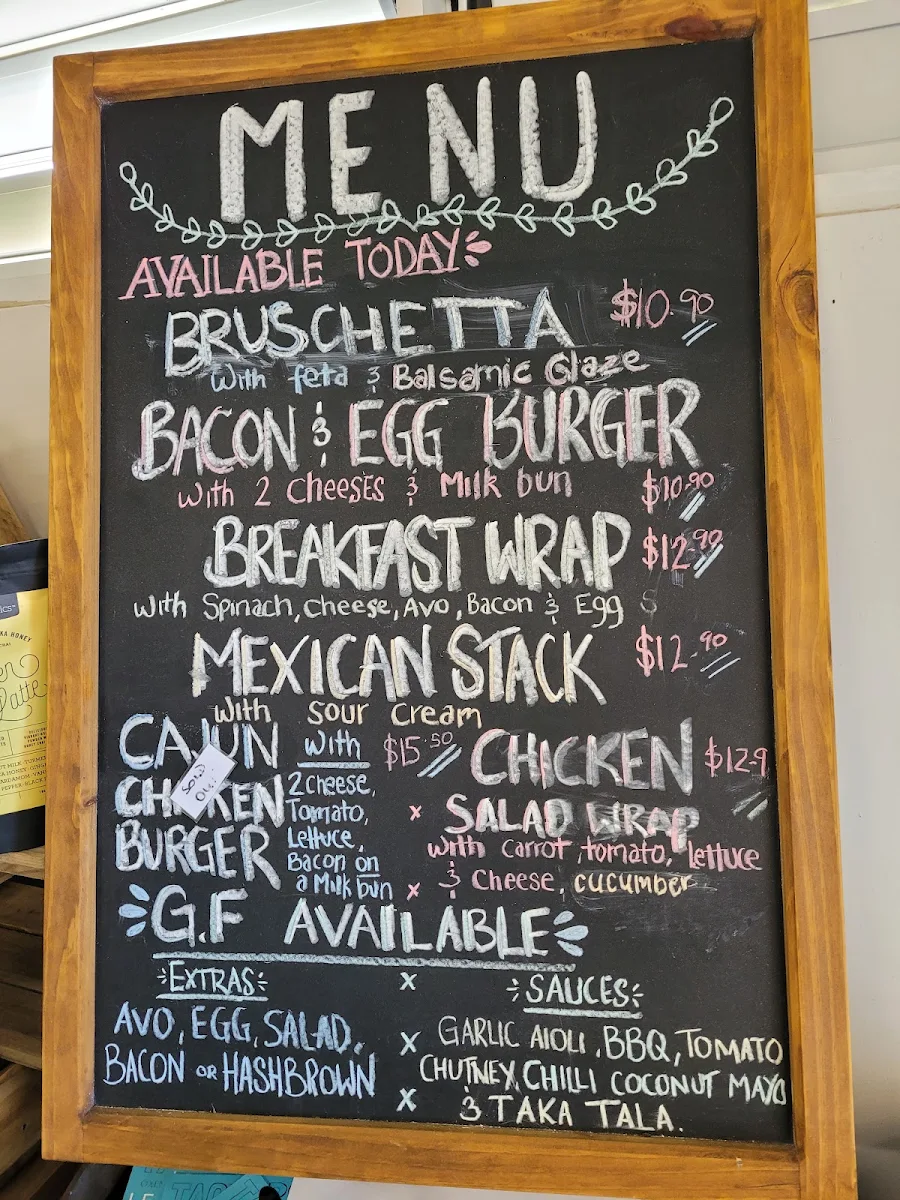 MENU
AVAILABLE TODAY
BRUSCHETTA $10.90
with feta & Balsamic Glaze
BACON & EGG BURGER
with 2 cheeses & Milk bun $10.90
BREAKFAST WRAP $12.90
with Spinach, cheese, Avo, Bacon & Egg
MEXICAN STACK $12.90
with sour cream
CAJUN CHICKEN BURGER $15.50
SOLD OUT
with
2 cheese,
Tomato,
Lettuce,
Bacon on
a Milk bun
CHICKEN $12.9
SALAD WRAP
with carrot, tomato, lettuce
& cheese, cucumber
G.F AVAILABLE
EXTRAS
AVO, EGG, SALAD,
BACON OR HASHBROWN
SAUCES
GARLIC AIOLI, BBQ, TOMATO
CHUTNEY, CHILLI COCONUT MAYO
& TAKA TALA.